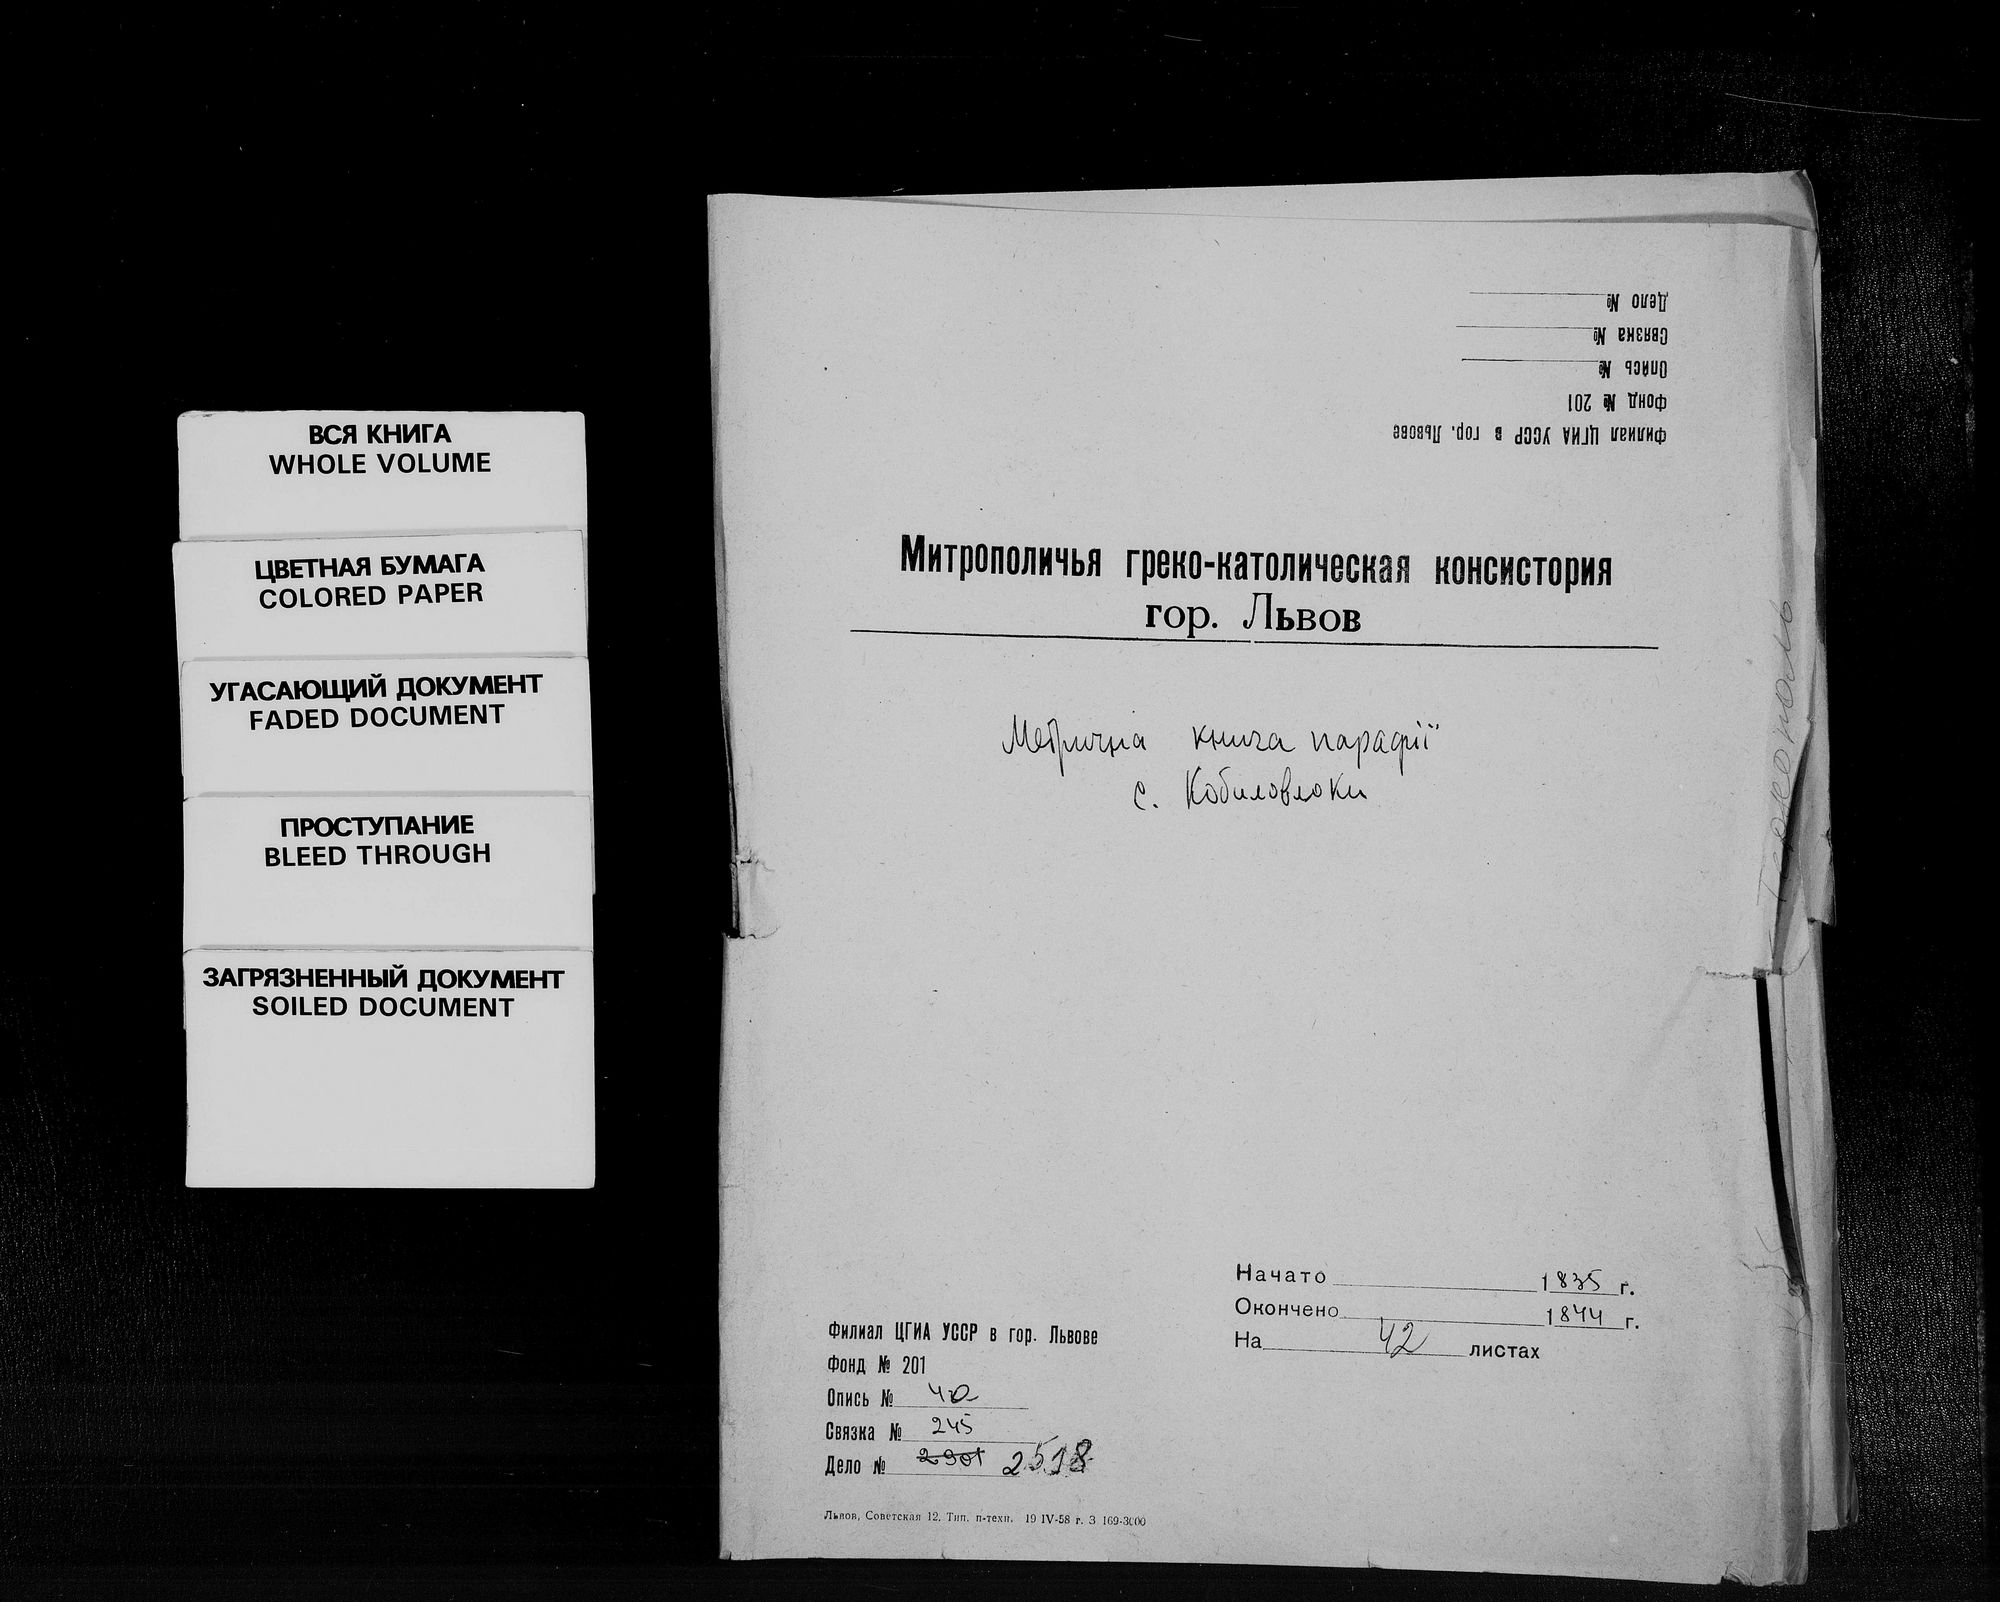 ВСЯ КНИГА
WHOLE VOLUME
ЦВЕТНАЯ БУМАГА
COLORED PAPER
УГАСАЮЩИЙ ДОКУМЕНТ
FADED DOCUMENT
ПРОСТУПАНИЕ
BLEED THROUGH
ЗАГРЯЗНЕННЫЙ ДОКУМЕНТ
SOILED DOCUMENT
Филиал ЦГИА УССР в гор. Львове
Фонд № 201
Опись №
Связка №
Дело №
Митрополичья греко-католическая консистория
гор. Львов
Метрична книга парафії
с. Кобиловлоки
Начато 1835 г.
Окончено 1844 г.
На 42 листах
Филиал ЦГИА УССР в гор. Львове
Фонд № 201
Опись № 4а
Связка № 245
Дело № 2901 2518
Львов, Советская 12. Тип. п-техн. 19 IV-58 г. З 169-3000
Тернополь